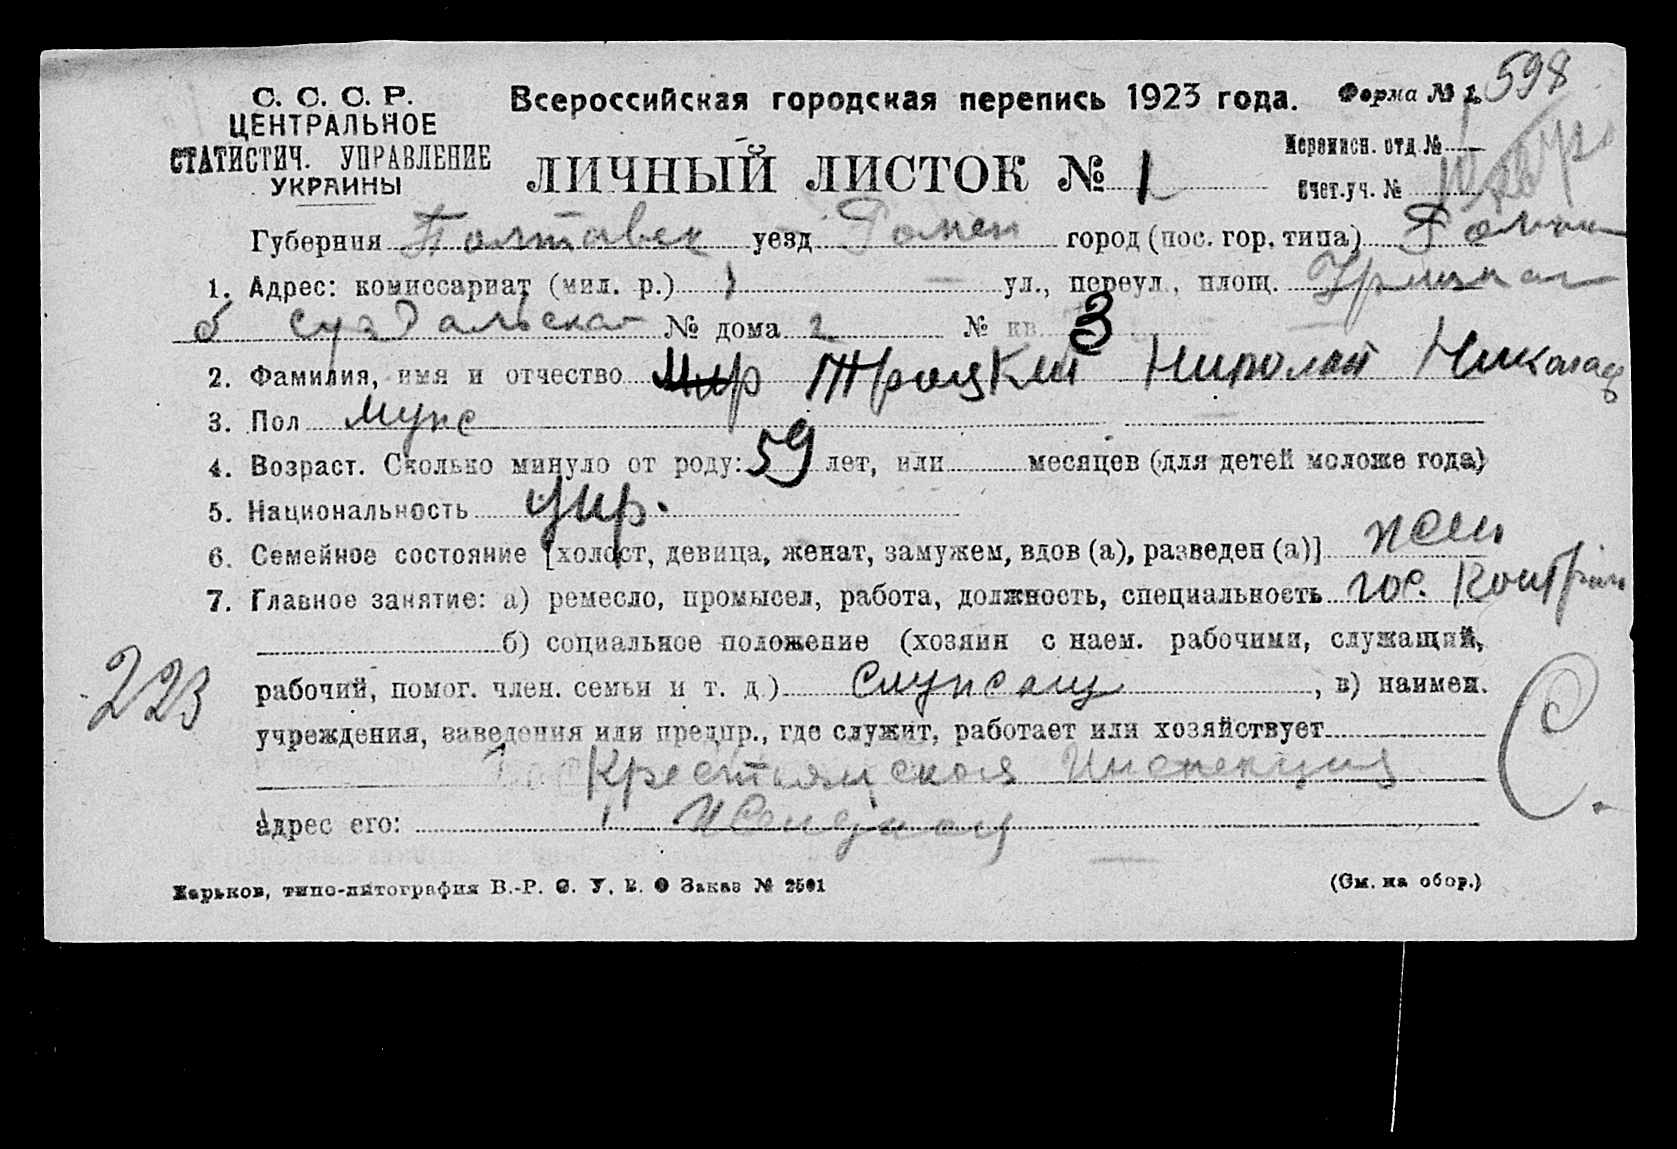 С. С. С. Р.
ЦЕНТРАЛЬНОЕ
СТАТИСТИЧ. УПРАВЛЕНИЕ
УКРАИНЫ
Всероссийская городская перепись 1923 года.
Форма № 1.
598
ЛИЧНЫЙ ЛИСТОК № 1
Переписн. отд №
Счет.уч. №
Губерния Полтавск уезд Ромен город (пос. гор. типа)
1. Адрес: комиссариат (мил. р.) 1 ул., переул., площ.
б Суздальская № дома 2 № кв 3
2. Фамилия, имя и отчество Троцкий Николай Николаев
3. Пол Мужс
4. Возраст. Сколько минуло от роду: 59 лет, или месяцев (для детей моложе года)
5. Национальность Укр.
6. Семейное состояние [холост, девица, женат, замужем, вдов (а), разведен (а)] жен
7. Главное занятие: а) ремесло, промысел, работа, должность, специальность гос. Контрол
б) социальное положение (хозяин с наем. рабочими, служащий,
223
рабочий, помог. член. семьи и т. д.) Служсащ , в) наимен.
учреждения, заведения или предпр., где служит, работает или хозяйствует
Крестьянская Инспекция
С.
Адрес его:
Харьков, типо-литография В.-Р. С. У. В. О Заказ № 2501
(См. на обор.)